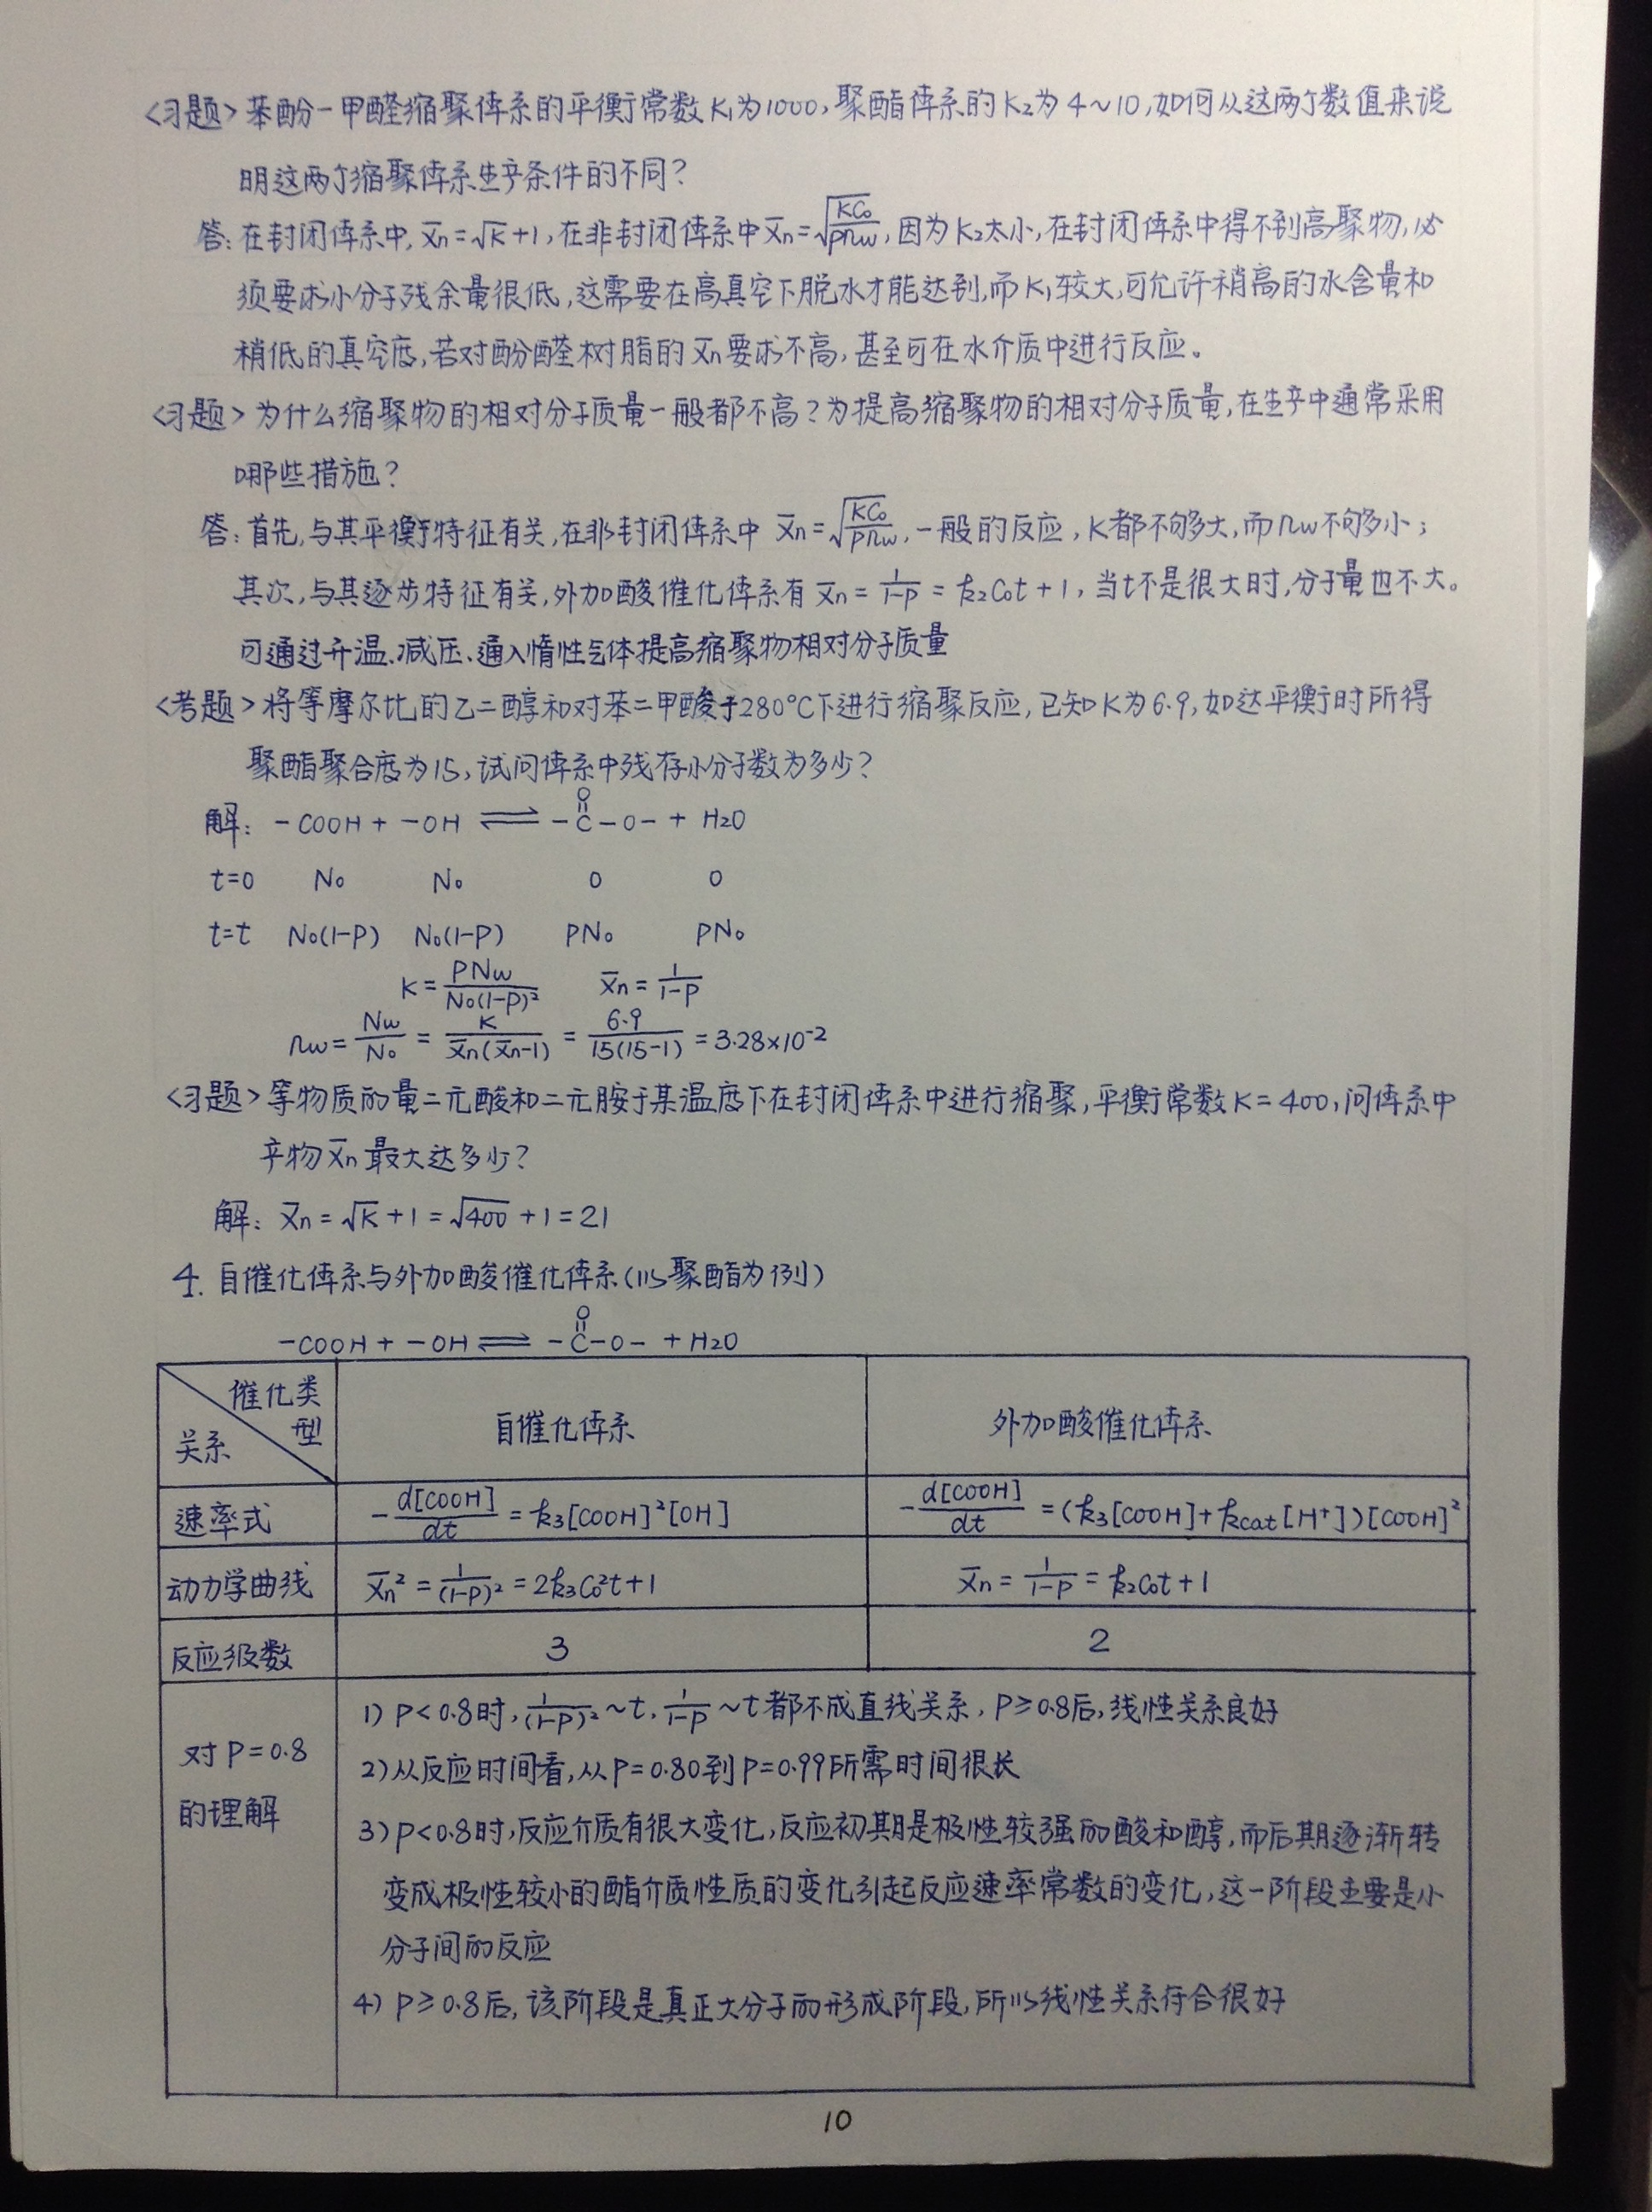 <习题> 苯酚-甲醛缩聚体系的平衡常数K₁为1000,聚酯体系的K₂为4~10,如何从这两个数值来说
明这两个缩聚体系生产条件的不同?
答:在封闭体系中,X̄n=√K+1,在非封闭体系中X̄n=√(KC₀/Pnw),因为K₂太小,在封闭体系中得不到高聚物,必
须要求小分子残余量很低,这需要在高真空下脱水才能达到,而K₁较大,可允许稍高的水含量和
稍低的真空度,若对酚醛树脂的X̄n要求不高,甚至可在水介质中进行反应。
<习题> 为什么缩聚物的相对分子质量一般都不高?为提高缩聚物的相对分子质量,在生产中通常采用
哪些措施?
答:首先,与其平衡特征有关,在非封闭体系中 X̄n=√(KC₀/Pnw),一般的反应,K都不够大,而nw不够小;
其次,与其逐步特征有关,外加酸催化体系有 X̄n=1/(1-P)=k₂C₀t+1,当t不是很大时,分子量也不大。
可通过升温、减压、通入惰性气体提高缩聚物相对分子质量
<考题> 将等摩尔比的乙二醇和对苯二甲酸于280℃下进行缩聚反应,已知K为6.9,如达平衡时所得
聚酯聚合度为15,试问体系中残存小分子数为多少?
解: -COOH + -OH ⇌ -C(=O)-O- + H₂O
t=0 N₀ N₀ 0 0
t=t N₀(1-P) N₀(1-P) PN₀ PN₀
K=PNw/N₀(1-P)² X̄n=1/(1-P)
nw=Nw/N₀=K/X̄n(X̄n-1)=6.9/15(15-1)=3.28×10⁻²
<习题> 等物质的量二元酸和二元胺于某温度下在封闭体系中进行缩聚,平衡常数K=400,问体系中
产物X̄n最大达多少?
解: X̄n=√K+1=√400+1=21
4. 自催化体系与外加酸催化体系(以聚酯为例)
-COOH + -OH ⇌ -C(=O)-O- + H₂O
催化类型
关系
自催化体系
外加酸催化体系
速率式
-d[COOH]/dt=k₃[COOH]²[OH]
-d[COOH]/dt=(k₃[COOH]+kcat[H⁺])[COOH]²
动力学曲线
X̄n²=1/(1-P)²=2k₃C₀²t+1
X̄n=1/(1-P)=k₂C₀t+1
反应级数
3
2
对P=0.8
的理解
1) P<0.8时,1/(1-P)²~t,1/(1-P)~t都不成直线关系,P≥0.8后,线性关系良好
2) 从反应时间看,从P=0.80到P=0.99所需时间很长
3) P<0.8时,反应介质有很大变化,反应初期是极性较强的酸和醇,而后期逐渐转
变成极性较小的酯介质性质的变化引起反应速率常数的变化,这一阶段主要是小
分子间的反应
4) P≥0.8后,该阶段是真正大分子的形成阶段,所以线性关系符合很好
10